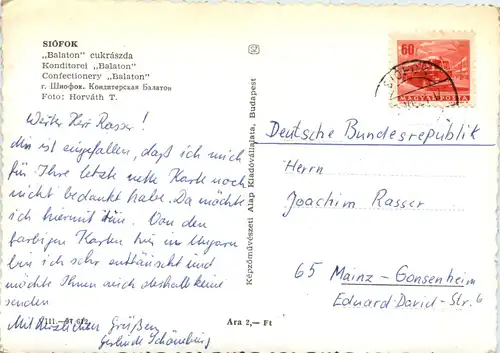 SIÓFOK
„Balaton" cukrászda
Konditorei „Balaton"
Confectionery „Balaton"
г. Шиофок. Кондитерская Балатон
Foto: Horváth T.
Werter Herr Rasser!
Mir ist eingefallen, daß ich mich
für Ihre letzte nette Karte noch
nicht bedankt habe. Da möchte
ich hiermit tun. Von den
farbigen Karten hier in Ungarn
bin ich sehr enttäuscht und
möchte Ihnen auch deshalb keine
senden
Mit herzlichen Grüßen
Gerlinde Schönburg
Ara 2,— Ft
Képzőművészeti Alap Kiadóvállalata, Budapest
60
MAGYAR POSTA
Deutsche Bundesrepublik
Herrn
Joachim Rasser
65 Mainz-Gonsenheim
Eduard-David-Str. 6